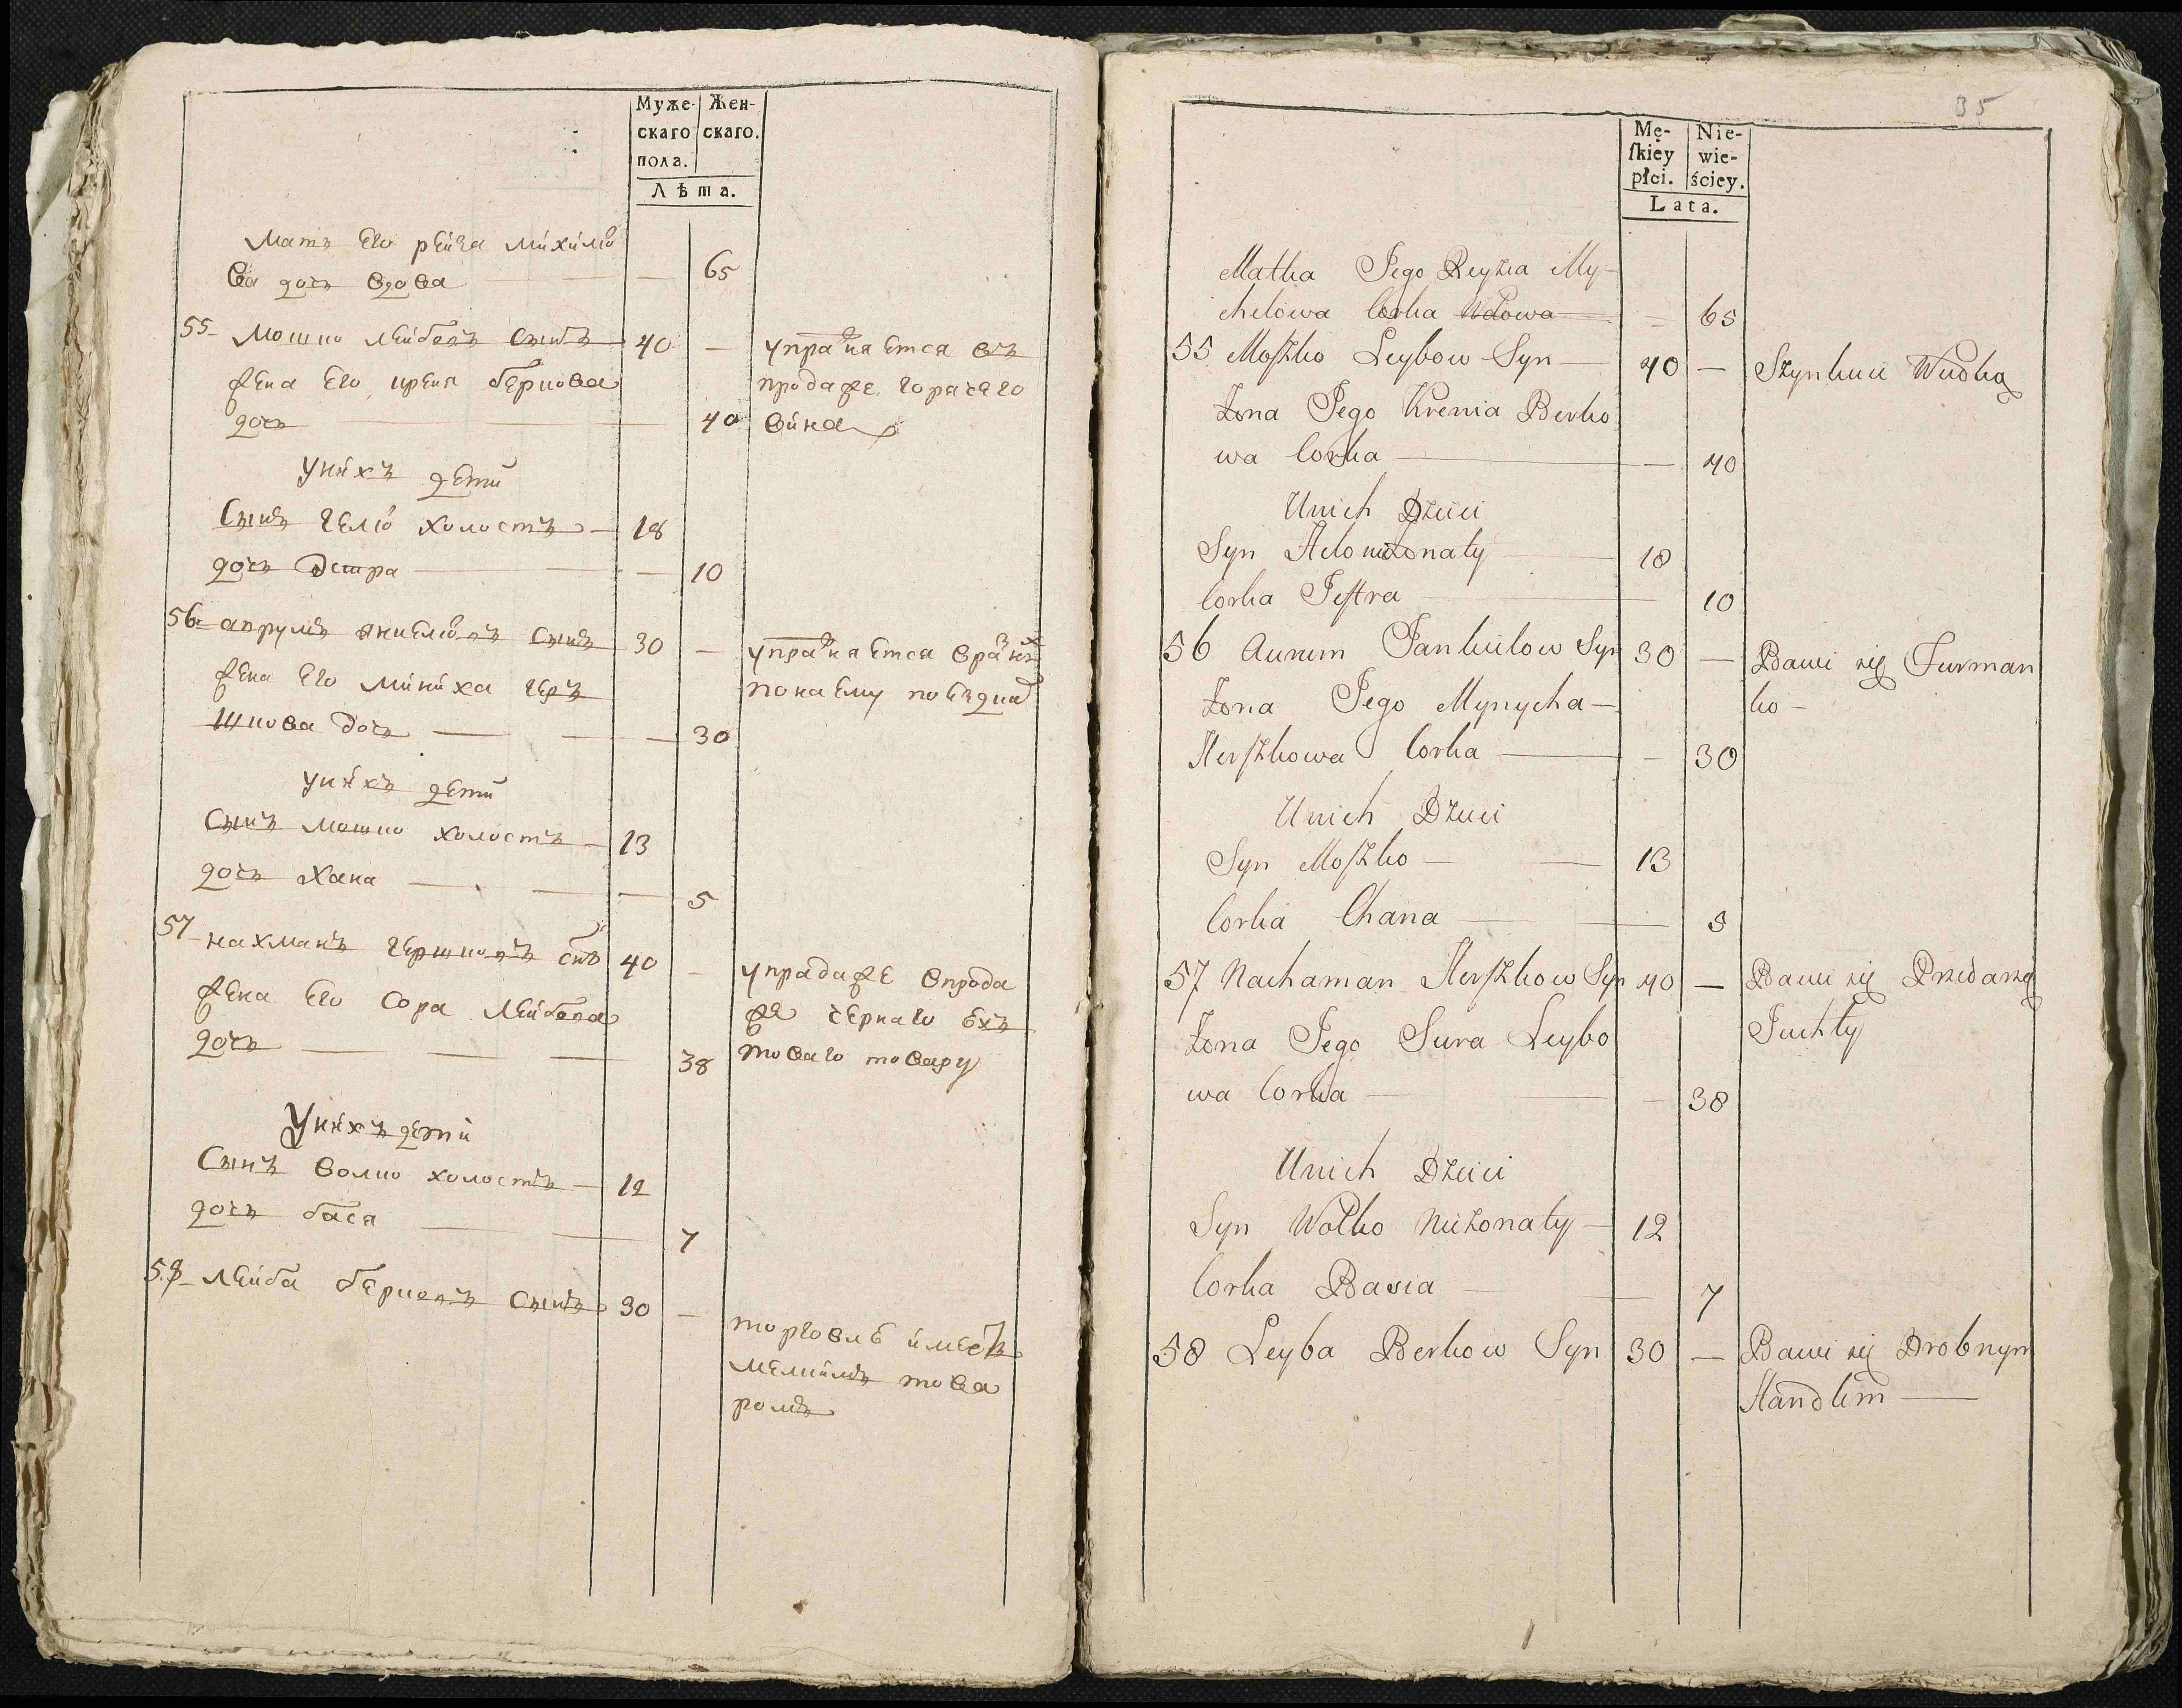 Муже- Жен-
скаго скаго.
пола.
Лѣта.
Мать Его рейза михилю
ва дочь вдова — 65
55 Мошко лейбовъ сынъ 40 — упражнаетса въ
жена Его креня беркова продаже горачего
дочь — 40 вина
унихъ дети
Сынъ гелю холостъ 18
дочь Эстра — 10
56 аврумъ янкелювъ сынъ 30 — упражнаетса вразныхъ
жена Его миниха гер
шкова дочь — 30
унихъ дети
сынъ мошко холостъ 13
дочь Хана — 5
57 нахманъ гершковъ снъ 40 — впрода
жена Его Сора лейбова же чернаго
дочь — 38 товаго товару
Унихъ дети
Сынъ волко холостъ 12
дочь бася — 7
58 лейба берковъ сынъ 30 — торговлѣ имеетъ
мелкимъ това
ромъ
35
Mę- Nie-
ſkiey wie-
płci. ściey.
Lata.
Matka Jego Reyza My-
chelowa Corka Wdowa — 65
55 Moſzko Leybow Syn 40 — Szynkuie Wudką
Żona Jego Krenia Berko
wa Corka — 40
Unich Dzieci
Syn Helo nieżonaty 18
Corka Jeſtra — 10
56 Aurum Jankielow Syn 30 — Bawi się Furman
Żona Jego Mynycha — ko —
Herſzkowa Corka — 30
Unich Dzieci
Syn Moſzko — 13
Corka Chana — 5
57 Nachaman Herſzkow Syn 40 — Bawi się Przedarzą
Żona Jego Sura Leybo Juchty
wa Corka — 38
Unich Dzieci
Syn Wolko Nieżonaty — 12
Corka Basia — 7
58 Leyba Berkow Syn 30 — Bawi się Drobnym
Handlem —